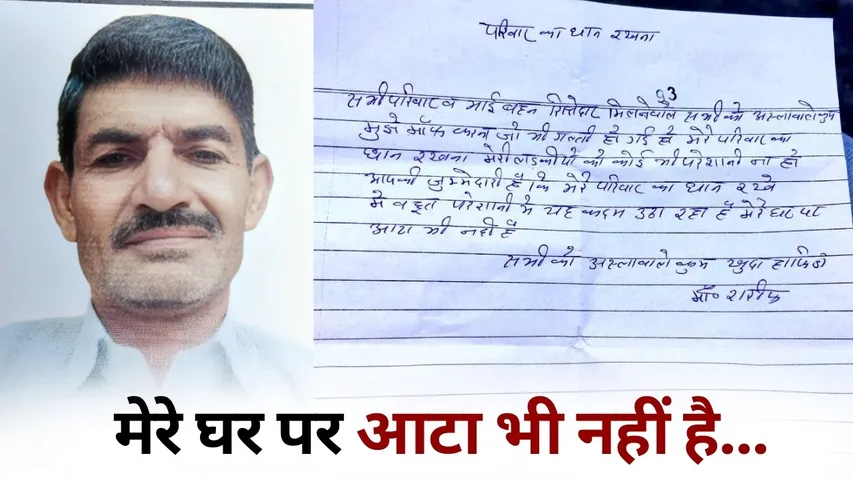 परिवार का ध्यान रखना
93
सभी परिवार व भाई बहन रिश्तेदार मिलनेवाले सभी को अस्लावालेकुम
मुझे मॉफ करना जो भी गल्ती हो गई है मेरे परिवार का
ध्यान रखना मेरी लड़कीयो को कोई भी परेशानी ना हो
आपकी जुम्मेदारी है कि मेरे परिवार का ध्यान रखे
मे बहुत परेशानी मे यह कदम उठा रहा हूँ मेरे घर पर
आटा भी नही है
सभी को अस्लावालेकुम खुदा हाफिज
मॉ० शरीफ
मेरे घर पर आटा भी नहीं है...